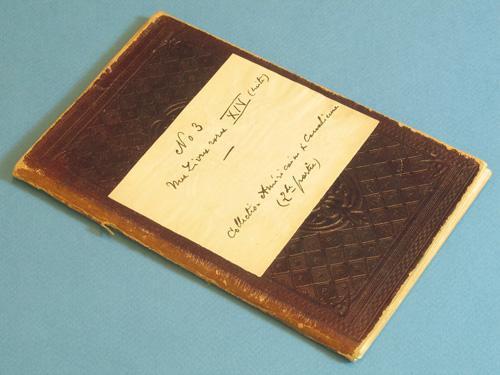 No 3
Mes Livres rares XIV (suite)
Collection Américaine & Canadienne
(2de partie)